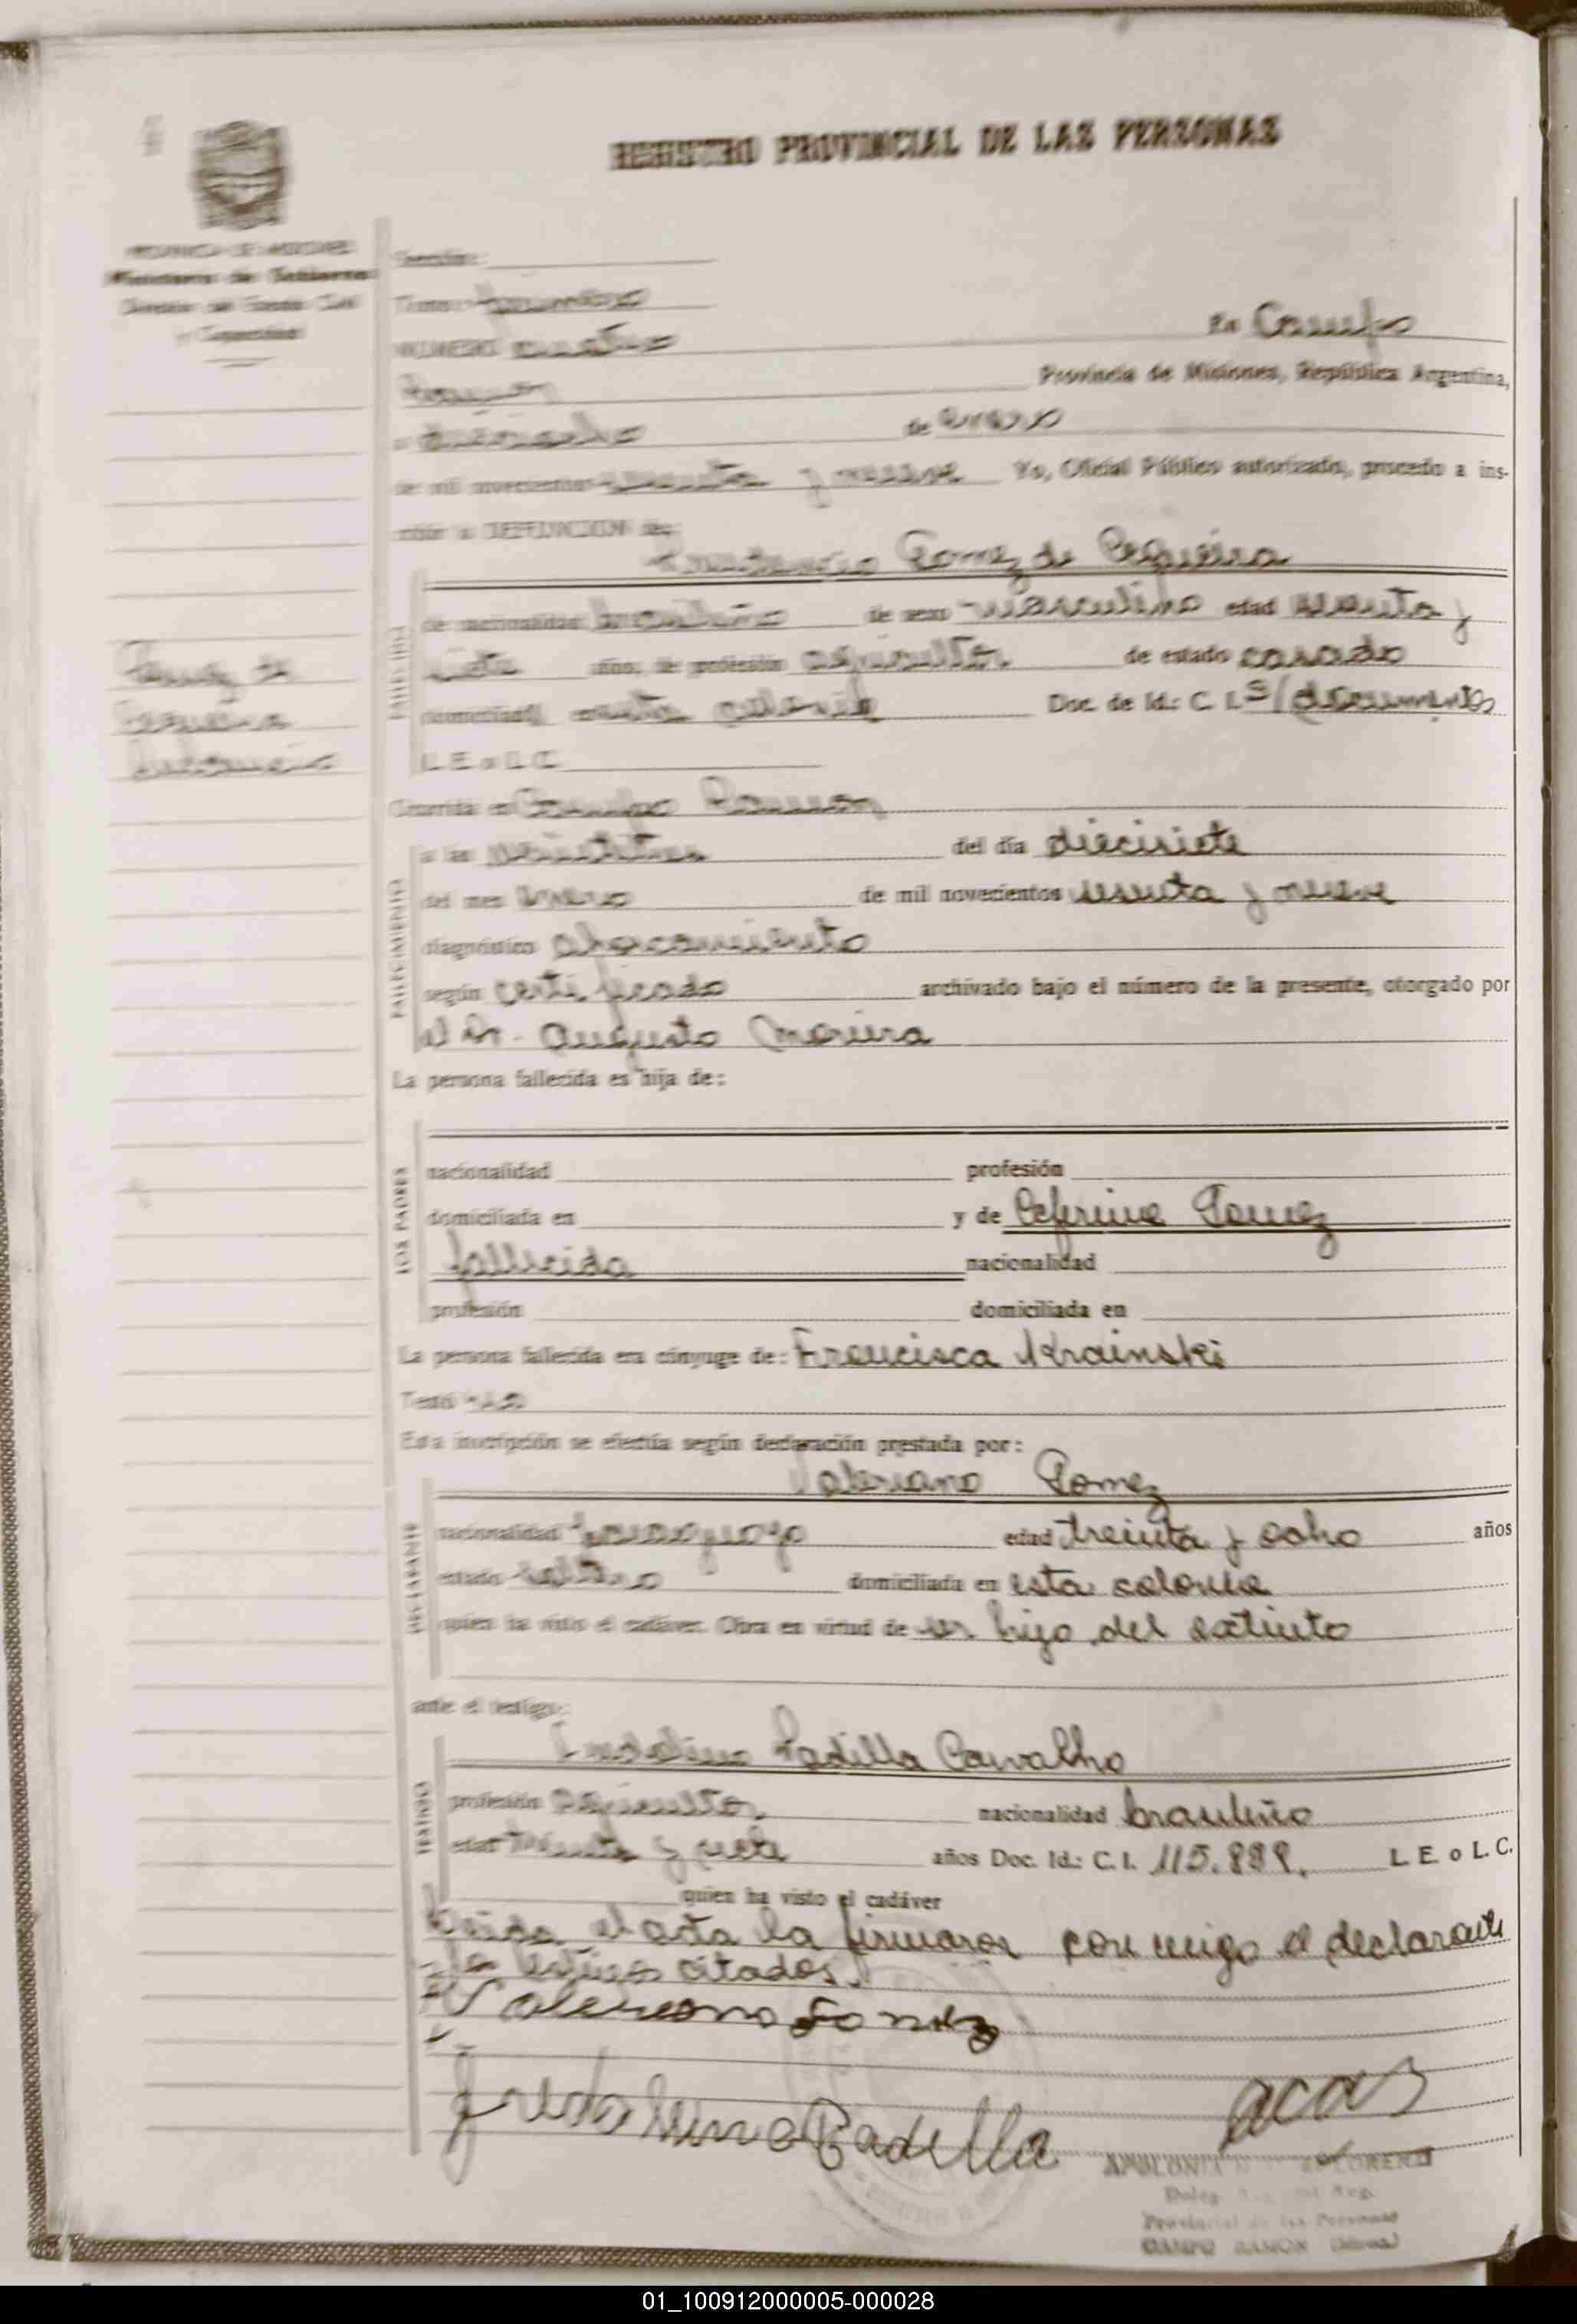 REGISTRO PROVINCIAL DE LAS PERSONAS
PROVINCIA DE MISIONES
Ministerio de Gobierno
y Capacidad
Sección:
Tomo:
NUMERO cuatro En Campo
Ramon Provincia de Misiones, República Argentina,
a dieciocho de enero
de mil novecientos sesenta y nueve Yo, Oficial Público autorizado, procedo a ins-
cribir la DEFUNCION de:
Gomez de Cequeira
de nacionalidad brasileño de sexo masculino edad sesenta y
siete años, de profesión agricultor. de estado casado
domiciliad en esta colonia Doc. de Id.: C. I. S/documentos
L. E. o L. C.
Gomez de
Cequeira
Ocurrida en Campo Ramon
a las veintitres del día diecisiete
del mes enero de mil novecientos sesenta y nueve
FALLECIMIENTO
diagnóstico ahorcamiento
según certificado archivado bajo el número de la presente, otorgado por
el Dr. Augusto Moreira
La persona fallecida es hija de:
LOS PADRES
nacionalidad profesión
domiciliada en y de Ceferina Gomez
fallecida nacionalidad
profesión domiciliada en
La persona fallecida era cónyuge de: Francisca Krainski
Testó no
Esta inscripción se efectúa según declaración prestada por:
Valeriano Gomez
DECLARANTE
nacionalidad paraguayo edad treinta y ocho años
estado soltero domiciliada en esta colonia
quien ha visto el cadáver. Obra en virtud de ser hijo del extinto
ante el testigo:
Padilla Carvalho
TESTIGO
profesión agricultor. nacionalidad brasileño
edad treinta y siete años Doc. Id.: C. I. 115.889. L. E. o L. C.
quien ha visto el cadáver
Leida el acta la firmaron conmigo el declarante
y los testigos citados.
Valeriano Gomez
Padilla
LORENZ
Provincial de las Personas
CAMPO RAMON (Misiones)
01_100912000005-000028